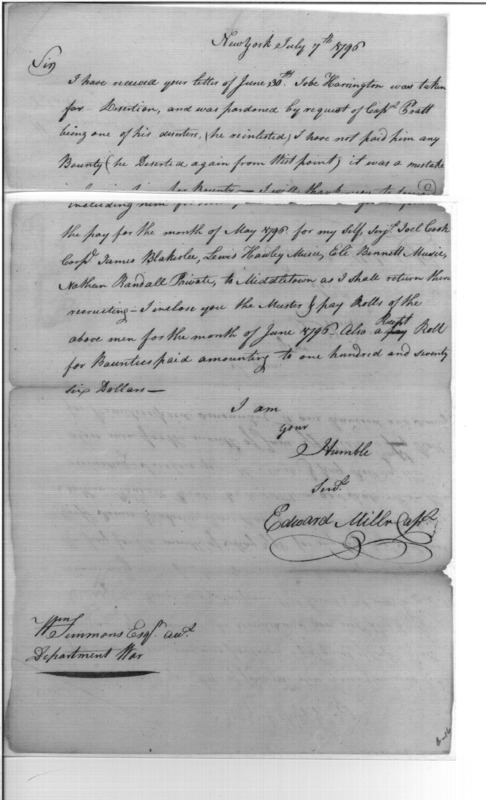 New York July 7th 1796
Sir
I have received your letter of June 30th. Jobe Harrington was taken
for Desertion, and was pardoned by request of Capt. Pratt
being one of his deserters, (he reinlisted) I have not paid him any
Bounty (he Deserted again from West point) it was a mistake
including him for
the pay for the month of May 1796 for my Self, Serjt. Joel Cook
Corpl. James Blakeslee, Lewis Hawley Music, Eli Bennett Music,
Nathan Randall Private, to Middletown as I shall return there
recruiting – I inclose you the Muster & pay Rolls of the
above men for the month of June 1796. Also a pay Recept Roll
for Bounties paid amounting to one hundred and seventy
six Dollars —
I am
your
Humble
Servt.
Edward Miller Capt.
Wm Simmons Esqr. acct.
Department War